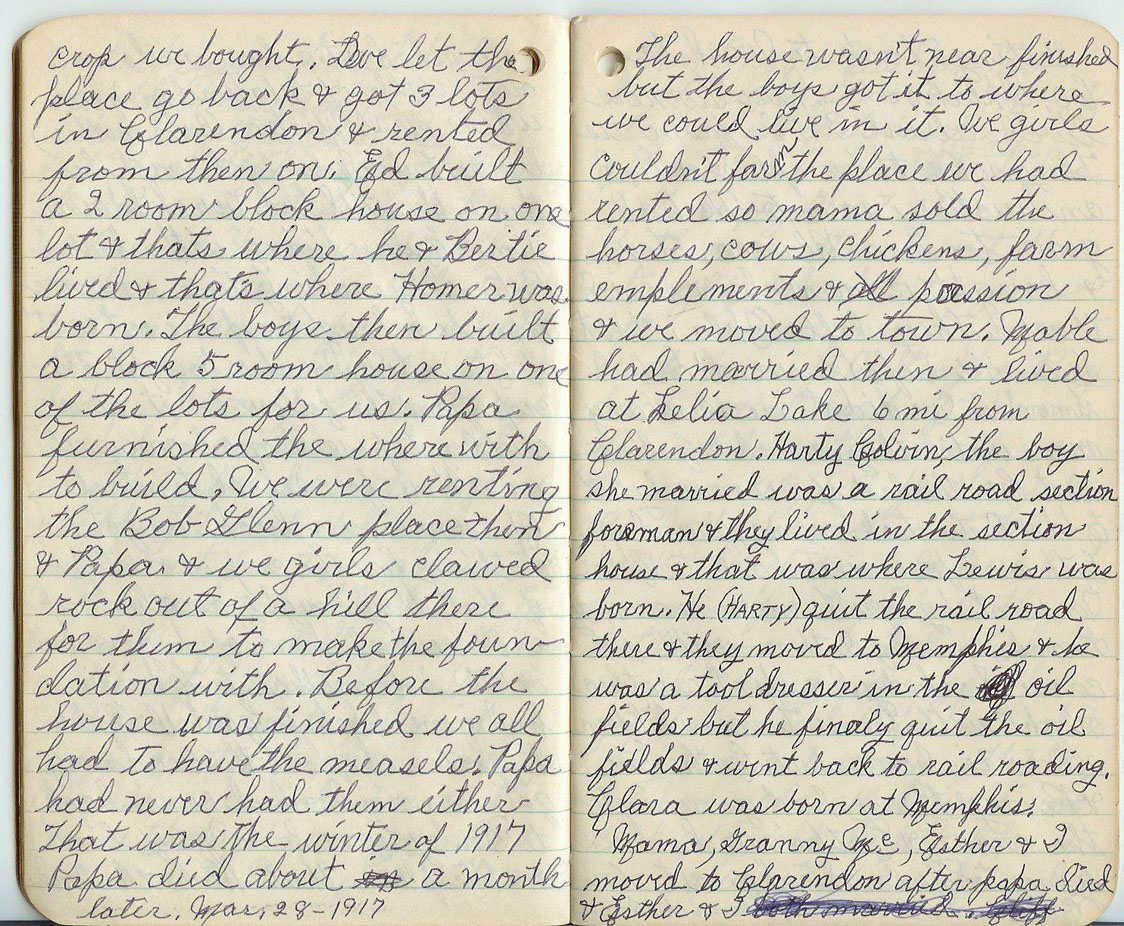 crop we bought. We let the
place go back & got 3 lots
in Clarendon & rented
from then on. Ed built
a 2 room block house on one
lot & thats where he & Bertie
lived & that's where Homer was
born. The boys then built
a block 5 room house on one
of the lots for us. Papa
furnished the where with
to build. We were renting
the Bob Glenn place then
& Papa & we girls clawed
rock out of a hill there
for them to make the foun-
dation with. Before the
house was finished we all
had to have the measels. Papa
had never had them either
That was the winter of 1917
Papa died about a month
later. Mar. 28-1917
The house wasn't near finished
but the boys got it to where
we could live in it. We girls
couldn't farm the place we had
rented so mama sold the
horses, cows, chickens, farm
emplements & all possion
& we moved to town. Mable
had married then & lived
at Lelia Lake 6 mi from
Clarendon. Harty Colvin, the boy
she married was a rail road section
foreman & they lived in the section
house & that was where Lewis was
born. He (HARTY) quit the rail road
there & they moved to Memphis & he
was a tool dresser in the oil
fields but he finaly quit the oil
fields & went back to rail roading.
Clara was born at Memphis.
Mama, Granny Mc, Esther & I
moved to Clarendon after papa died
& Esther & I both married. Cliff